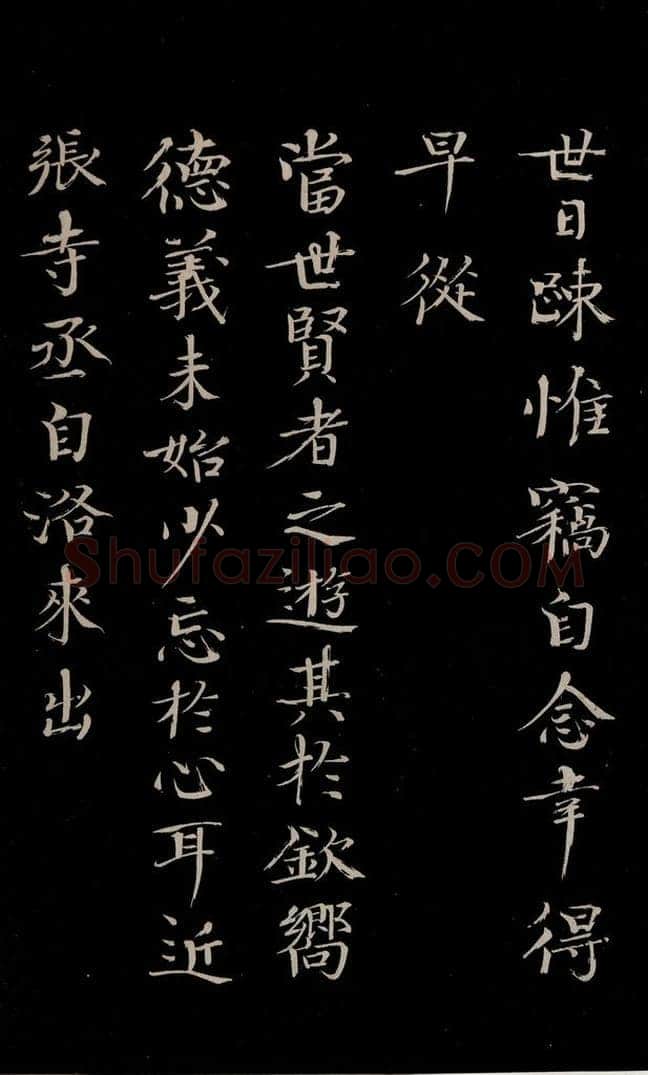 世日踈惟竊自念幸得
早從
當世賢者之遊其於欽嚮
德義未始少忘於心耳近
張寺丞自洛來出
Shufaziliao.COM